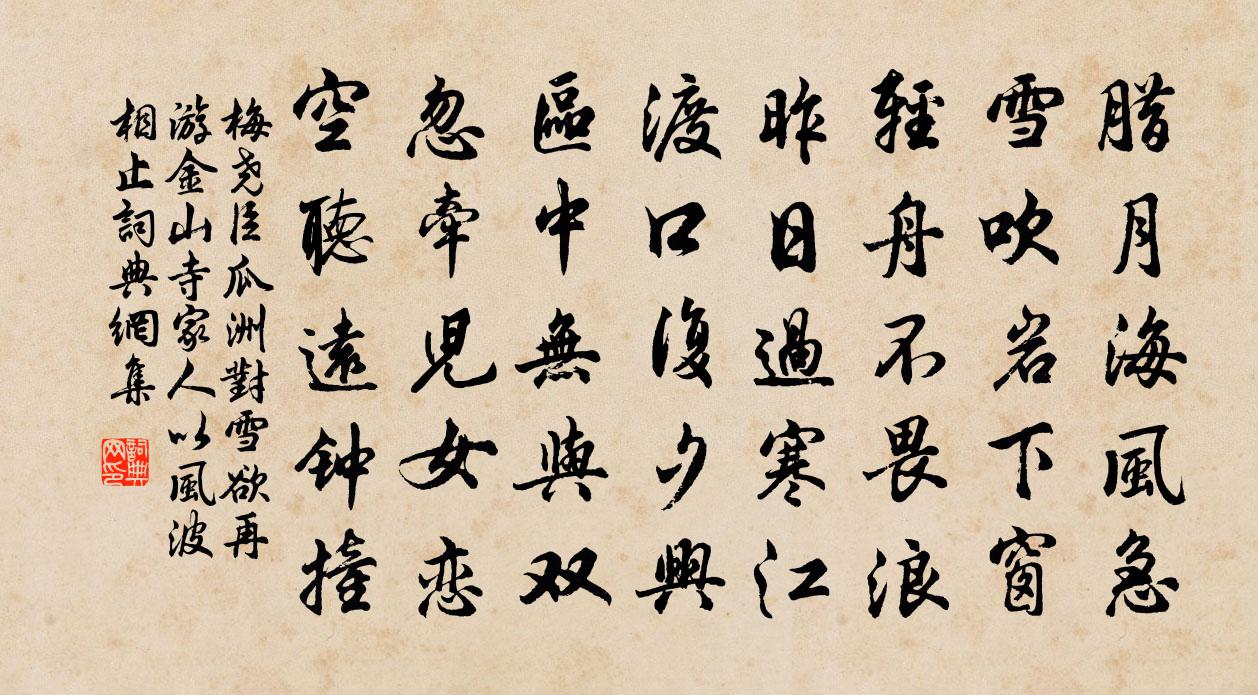 腊月海風急
雪吹岩下窗
輕舟不畏浪
昨日過寒江
渡口復夕興
區中無與双
忽牽児女恋
空聽遠钟撞
梅尧臣瓜洲對雪欲再
游金山寺家人以風波
相止詞典網集
詞典网印